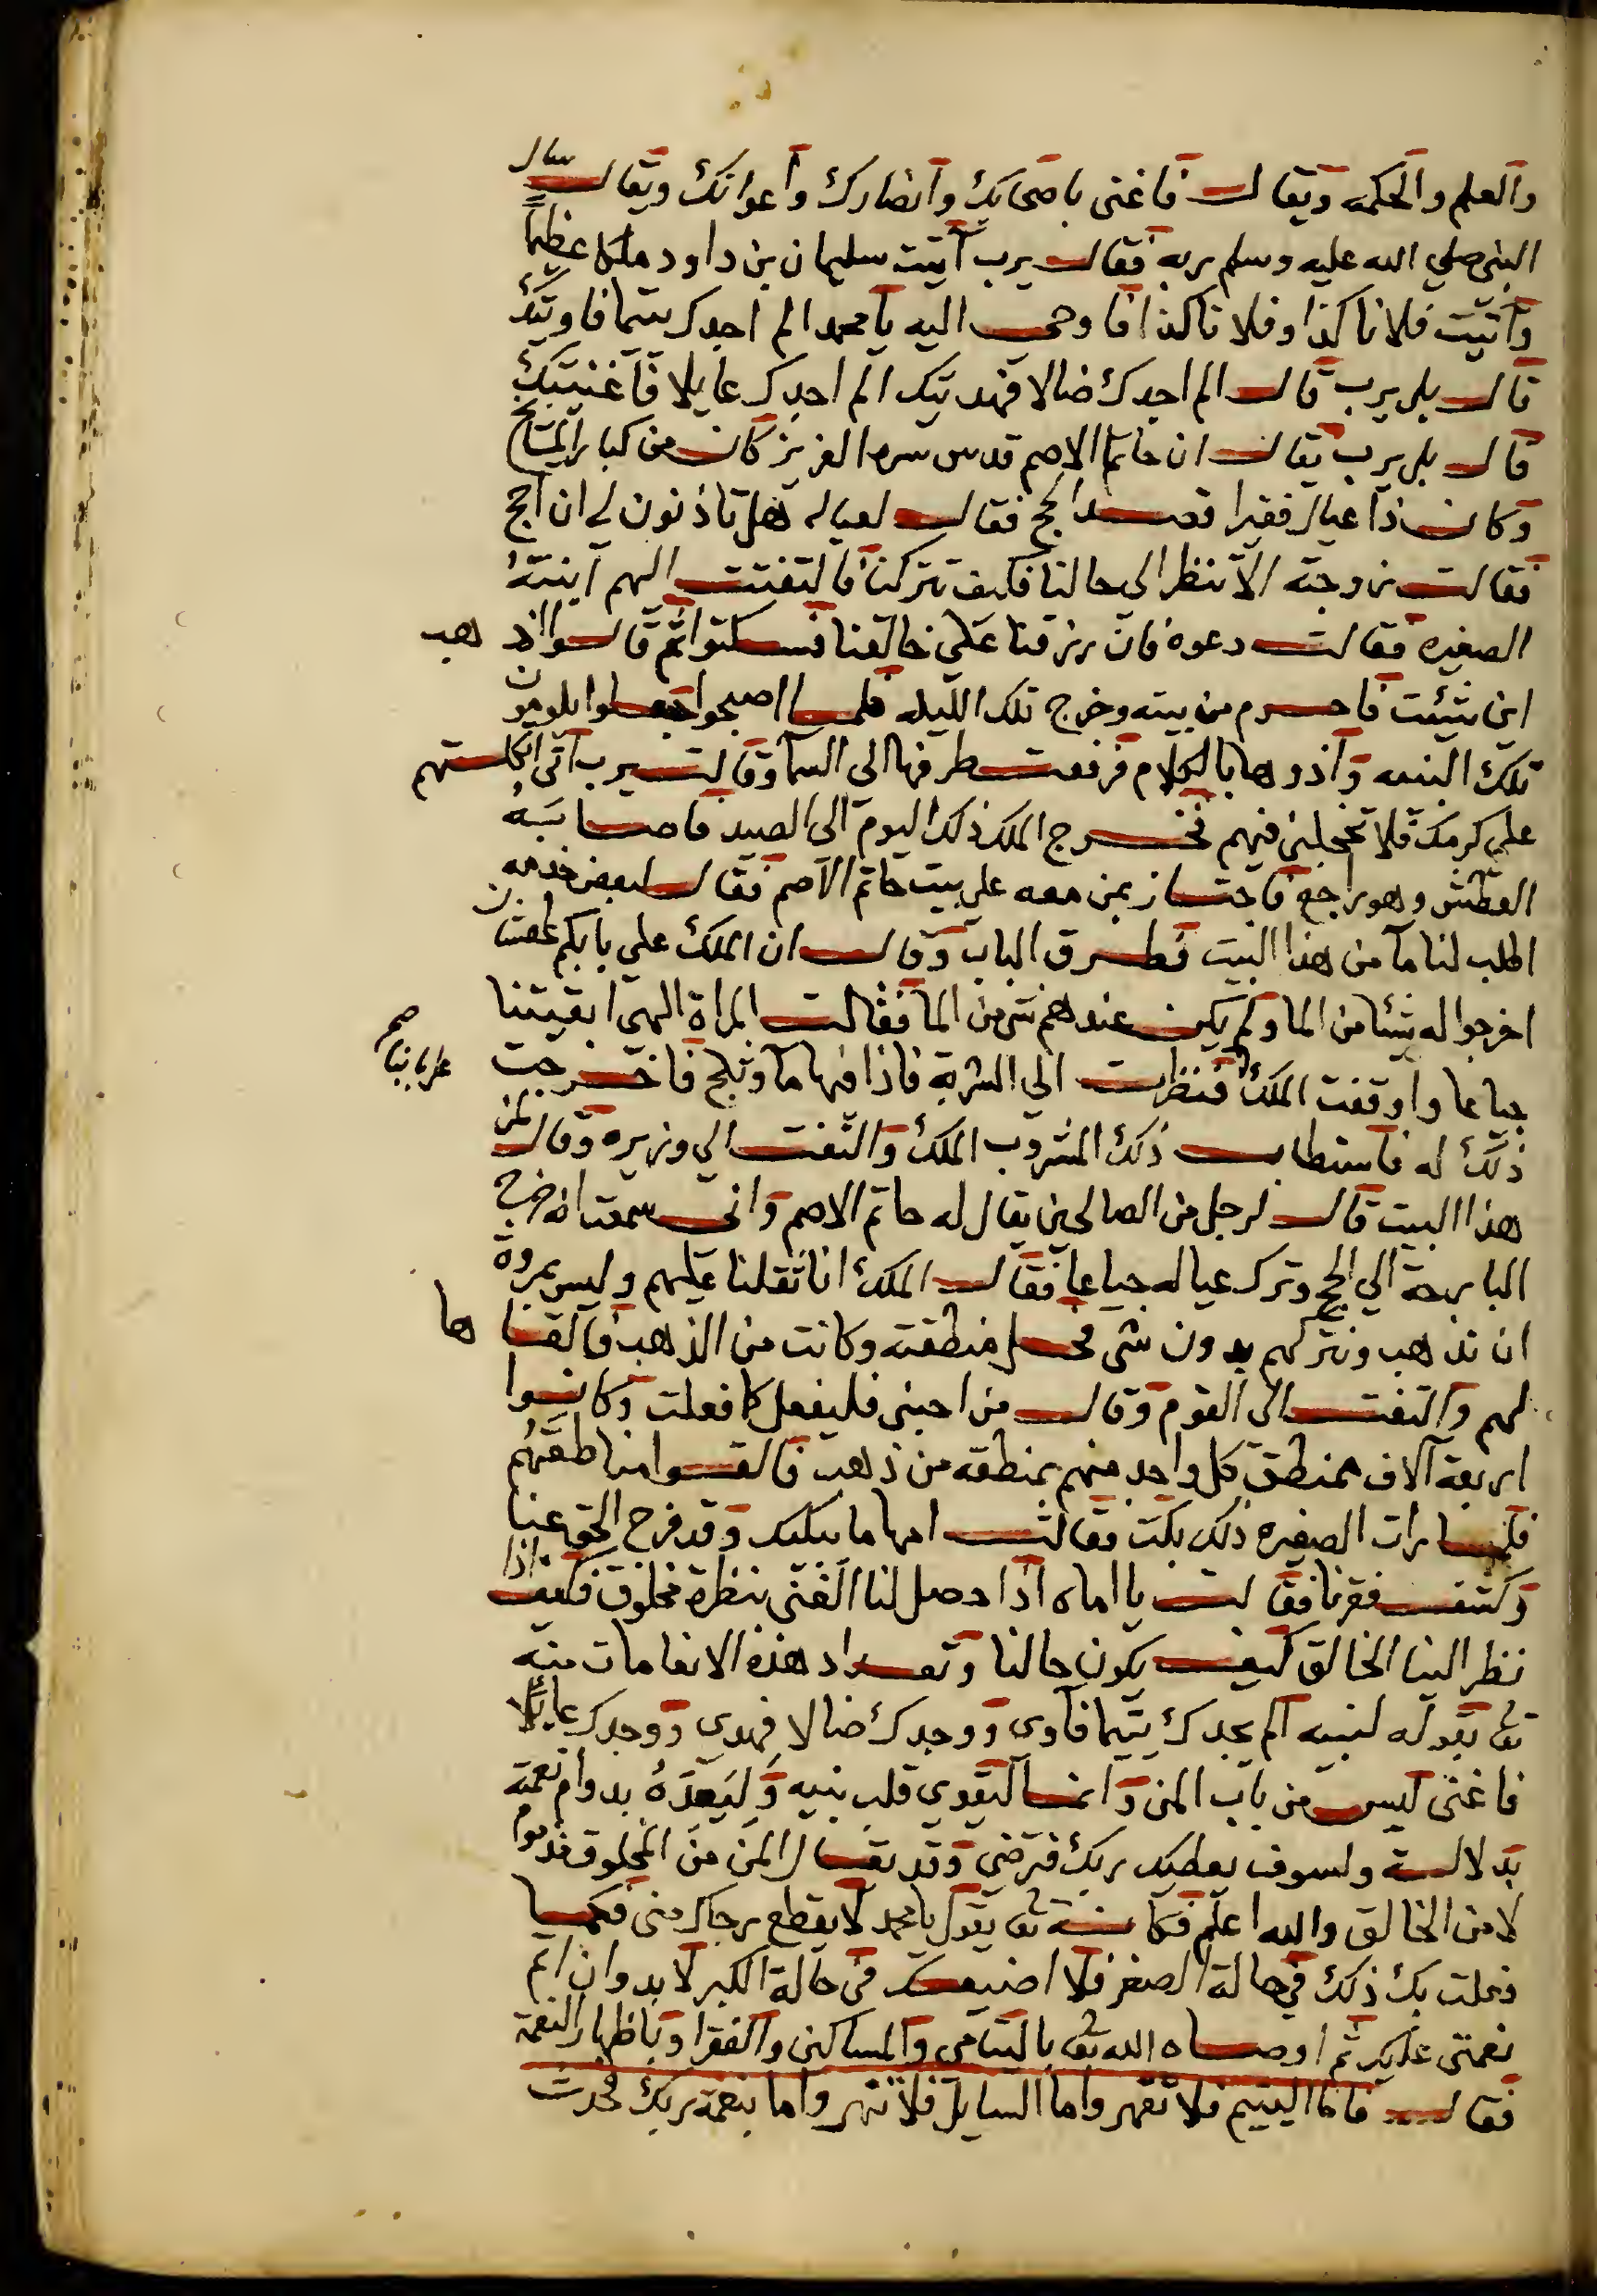 والعلم والحكمه ويقال فاغنى باصحابك وانصارك واعوانك ويقال سال
النبي صلي الله عليه وسلم ربه فقال يرب آتيت سليمان بن داود ملكا عظيماً
وآتيت فلانا كذا وفلانا كذا فاوحى اليه يا محمد الم اجدك يتيما فاويتك
قال بلى يرب قال الم اجدك ضالا فهديتك الم اجدك عايلا فاغنيتك
قال بلى يرب يقال ان حاتما الاصم قدس سره العزيز كان من كبار المشايخ
وكان ذا عيال فقيرا فقصد الحج فقال لعياله هل تاذنون لي ان احج
فقالت زوجته الا تنظر الى حالنا فكيف تتركنا فالتفتت اليهم ابنته
الصغيره فقالت دعوه فان رزقنا على خالقنا فسكتوا ثم قالوا اذهب
اين شئت فاحرم من بيته وخرج تلك الليله فلما اصبحوا جعلوا يلومون
تلك البنت وآذوها بالكلام فرفعت طرفها الى السما وقالت يرب اني اتكلتهم
على كرمك فلا تخجلني فيهم فخرج الملك ذلك اليوم الى الصيد فاصابته
العطش وهو راجع فاجتاز بمن معه على بيت حاتم الاصم فقال لبعض خدمه
اطلب لنا مآ من هذا البيت فطرق الباب وقال ان الملك على بابكم عطشان
اخرجوا له شيئا من الما ولم يكن عندهم شى من الما فقالت المراة الهي ابقيتنا
جياعا واوقفت الملك على بابنا صح فنظرت الى الشربة فاذا فيها مآ وثلج فاخرجت
ذلك له فاستطاب ذلك المشروب الملك والتفت الي وزيره وقال لمن
هذا البيت قال لرجل من الصالحين يقال له حاتم الاصم واني سمعت انه خرج
البارحة الي الحج وترك عياله جياعا فقال الملك انا ثقلنا عليهم وليس بمروة
ان نذهب ونتركهم بدون شى فحل منطقته وكانت من الذهب فالقاها
لهم والتفت الى القوم وقال من احبني فليفعل كما فعلت وكانوا
اربعة آلاف ممنطق كل واحد منهم بمنطقه من ذهب فالقوا مناطقهم
فلما رات الصغيره ذلك بكت فقالت امها ما يبكيك وقد فرج الحق عنا
وكشف فقرنا فقالت يا اماه اذا حصل لنا الغنى بنظرة مخلوق فكيف اذا
نظر الينا الخالق كيف يكون حالنا وتعداد هذه الانعامات منه
تعالى بقوله لنبيه الم يجدك يتيما فآوى ووجدك ضالا فهدى ووجدك عايلا
فاغنى ليس من باب المن وانما ليقوي قلب نبيه وليعده بدوام نعمته
بدلالة ولسوف يعطيك ربك فترضى وقد يقال المن من المخلوق مذموم
لا من الخالق والله اعلم فكانه تعالى يقول يا محمد لا يقطع رجاك منى فكما
فعلت بك ذلك في حالة الصغر فلا اضيعك فى حالة الكبر لا بد وان اتم
نعمتى عليك ثم اوصاه الله تعالى باليتامى والمساكين والفقرا وباظهار النعمة
فقال فاما اليتيم فلا تقهر واما السايل فلا تنهر واما بنعمة ربك فحدث